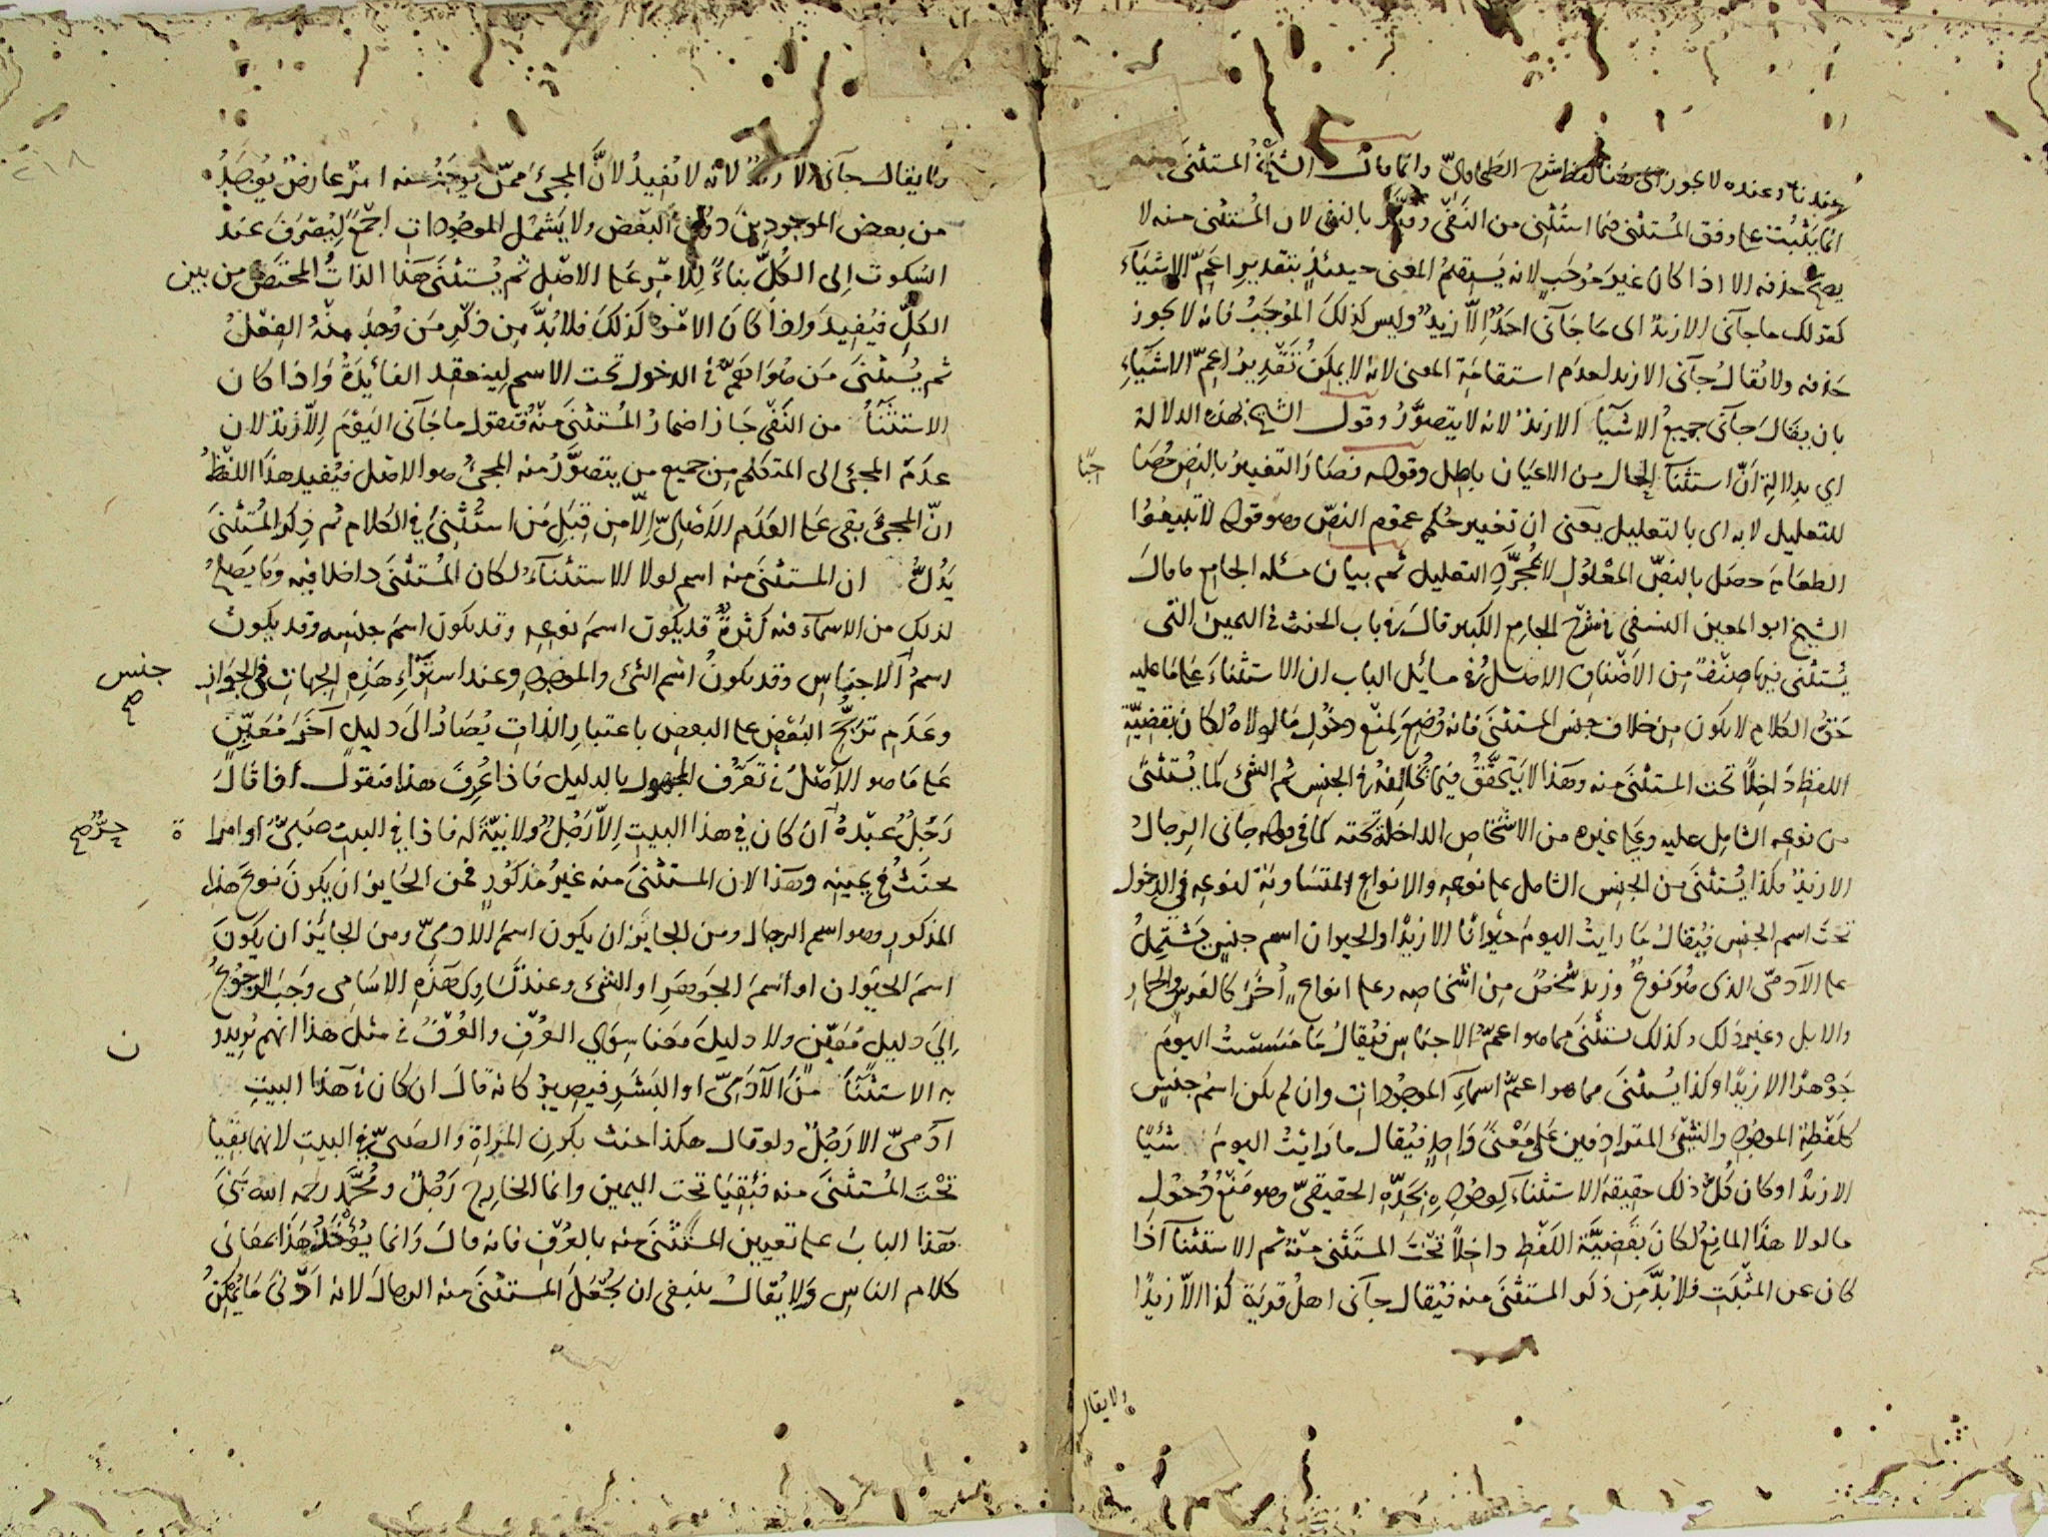 عندنا وعنده لا يجوز لفظ شرح الطحاوى وانما قال الشيخ المستثنى منه
انما يثبت على وفق المستثنى فيما استثنى من النفى وقيد بالنفى لان المستثنى منه لا
يصح حذفه الا اذا كان غير موجب لانه يستقيم المعنى حينئذ بتقدير اعم الاشياء
كقولك ما جآنى الا زيد اى ما جآنى احد الا زيد وليس كذلك الموجب فانه لا يجوز
حذفه ولا يقال جآنى الا زيد لعدم استقامة المعنى لانه لا يمكن تقدير اعم الاشياء
بان يقال جآنى جميع الاشيآ الا زيد لانه لا يتصور وقول الشيخ بهذه الدلالة
اي بدلالة ان استثنآ الحال من الاعيان باطل وقوله فصار التغيير بالنص مصاحبا
للتعليل لا به اى بالتعليل يعنى ان تغيير حكم عموم النص وهو قوله لا تبيعوا
الطعام حصل بالنص المعلول لا بمجرد التعليل ثم بيان مسئله الجامع ما قال
الشيخ ابو المعين النسفى في شرح الجامع الكبير قال في باب الحنث فى اليمين التى
يستثنى فيها صنف من الاصناف الاصل في مسائل الباب ان الاستثناء على ما عليه
حق الكلام لا يكون من خلاف جنس المستثنى فانه وضع لمنع دخول ما لولاه لكان بقضية
اللفظ داخلا تحت المستثنى منه وهذا لا يتحقق فيما يخالفه فى الجنس ثم الشئ كما يستثنى
من نوعه الشامل عليه وعلى غيره من الاشخاص الداخلة تحته كما في قوله جانى الرجال
الا زيد هكذا يستثنى من الجنس الشامل على نوعه والانواع المتساوية لنوعه في الدخول
تحت اسم الجنس فيقال ما رايت اليوم حيوانا الا زيدا والحيوان اسم جنس يشتمل
على الآدمى الذى هو نوع وزيد شخص من اشخاصه وعلى انواع اخر كالفرس والحمار
والابل وغير ذلك وكذلك يستثنى مما هو اعم الاجناس فيقال ما مسست اليوم
جوهرا الا زيدا وكذا يستثنى مما هو اعم اسماء الموجودات وان لم يكن اسم جنس
كلفظة الموجود والشئ المترادفين على معنى واحد فيقال ما رايت اليوم شيئا
الا زيدا وكان كل ذلك حقيقة الاستثناء لوجوده بحده الحقيقى وهو منع دخول
ما لولا هذا المانع لكان بقضية اللفظ داخلا تحت المستثنى منه ثم الاستثنآ اذا
كان عن المثبت فلا بد من ذكر المستثنى منه فيقال جآنى اهل قرية كذا الا زيدا
ولا يقال
ولا يقال جآنى الا زيد لانه لا يفيد لان المجئ ممن يوجد منه امر عارض يوجد
من بعض الموجودين دون البعض ولا يشمل الموجودات اجمع ليصرف عند
السكوت الى الكل بناء للامر على الاصل ثم يستثنى هذا الذات المختص من بين
الكل فيفيد واذا كان الامر كذلك فلا بد من ذكر من وجد منه الفعل
ثم يستثنى من هو اعم في الدخول تحت الاسم لينعقد الفائدة واذا كان
الاستثنآ من النفى جاز اضمار المستثنى منه فتقول ما جآنى اليوم الا زيد لان
عدم المجئ الى المتكلم من جميع من يتصور منه المجئ هو الاصل فيفيد هذا اللفظ
ان المجئ بقى على العدم الاصلى الا من قبل من استثنى في الكلام ثم ذكر المستثنى
يدل ان المستثنى منه اسم لولا الاستثناء لكان المستثنى داخلا فيه وما يصلح
لذلك من الاسماء فيه كثرة قد يكون اسم نوعه وقد يكون اسم جنسه وقد يكون
اسم الاجناس وقد يكون اسم الشئ والموجود وعند استواء هذه الجهات في الجواز
جنس صح
وعدم ترجح البعض على البعض باعتبار الذات يصار الى دليل آخر معين
على ما هو الاصل في تعرف المجهول بالدليل فاذا عرف هذا فنقول اذا قال
رجل عبده حر ان كان في هذا البيت الا رجل ولا نية له فاذا في البيت صبى او امراة
حر صح
يحنث في يمينه وهذا لان المستثنى منه غير مذكور فمن الجايز ان يكون نوع هذا
المذكور وهو اسم الرجال ومن الجايز ان يكون اسم الآدمى ومن الجائز ان يكون
اسم الحيوان او اسم الجوهر او الشئ وعند تساوى هذه الاسامى وجب الرجوع
الى دليل معين ولا دليل معنا سوى العرف والعرف في مثل هذا انهم يريدون
به الاستثنآ من الآدمى او البشر فيصير كانه قال ان كان في هذا البيت
آدمى الا رجل ولو قال هكذا حنث بكون المراة والصبى في البيت لانهما بقيا
تحت المستثنى منه فبقيا تحت اليمين وانما الخارج رجل ومحمد رحمه الله بنى
هذا الباب على تعيين المستثنى منه بالعرف فانه قال وانما يؤخذ هذا بمعانى
كلام الناس ولا يقال ينبغى ان يجعل المستثنى منه الرجال لانه ادنى ما يمكن